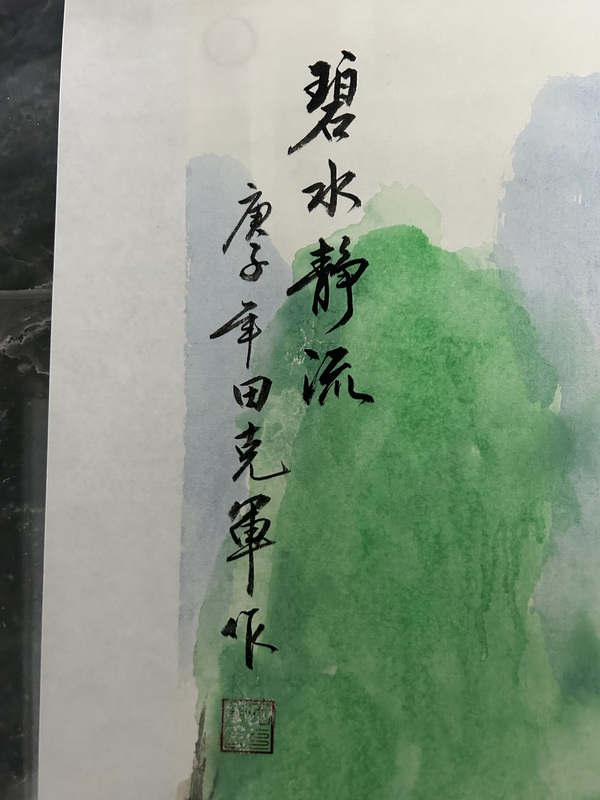 碧水静流
庚子年田克軍作